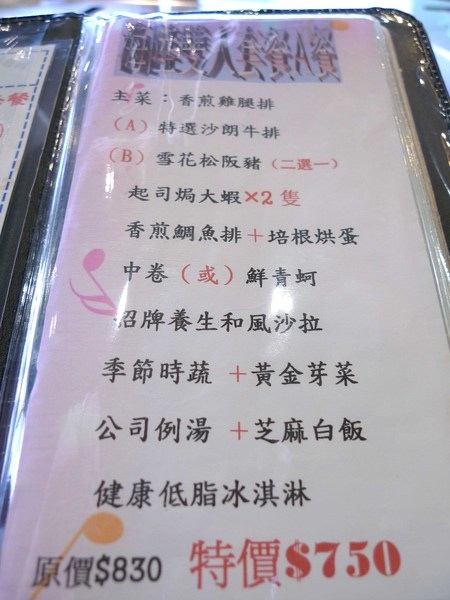 雙人套餐A餐
主菜：香煎雞腿排
（A）特選沙朗牛排
（B）雪花松阪豬（二選一）
起司焗大蝦×2隻
香煎鯛魚排＋培根烘蛋
中卷（或）鮮青蚵
招牌養生和風沙拉
季節時蔬 ＋黃金芽菜
公司例湯 ＋芝麻白飯
健康低脂冰淇淋
原價$830 特價$750